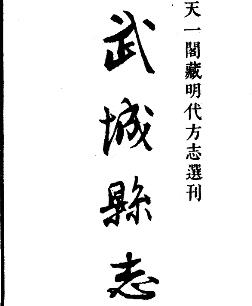 天一閣藏明代方志選刊
武城縣志